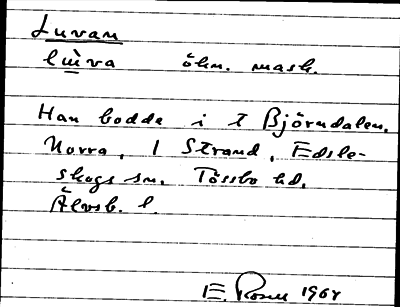 Luvan
lùva öhn. mask.
Han bodde i t Björndalen.
Norra, 1 Strand, Edsle-
skogs sn. Tössbo hd.
Älvsb. l.
E. Rosell 1964